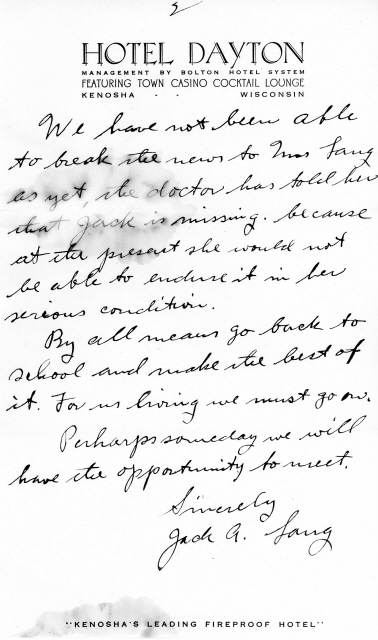 2
HOTEL DAYTON
MANAGEMENT BY BOLTON HOTEL SYSTEM
FEATURING TOWN CASINO COCKTAIL LOUNGE
KENOSHA · · WISCONSIN
We have not been able
to break the news to Mrs Lang
as yet, the doctor has told her
that Jack is missing. because
at the present she would not
be able to endure it in her
serious condition.
By all means go back to
school and make the best of
it. For us living we must go on.
Perharps someday we will
have the opportunity to meet.
Sincerely
Jack A. Lang
"KENOSHA'S LEADING FIREPROOF HOTEL"